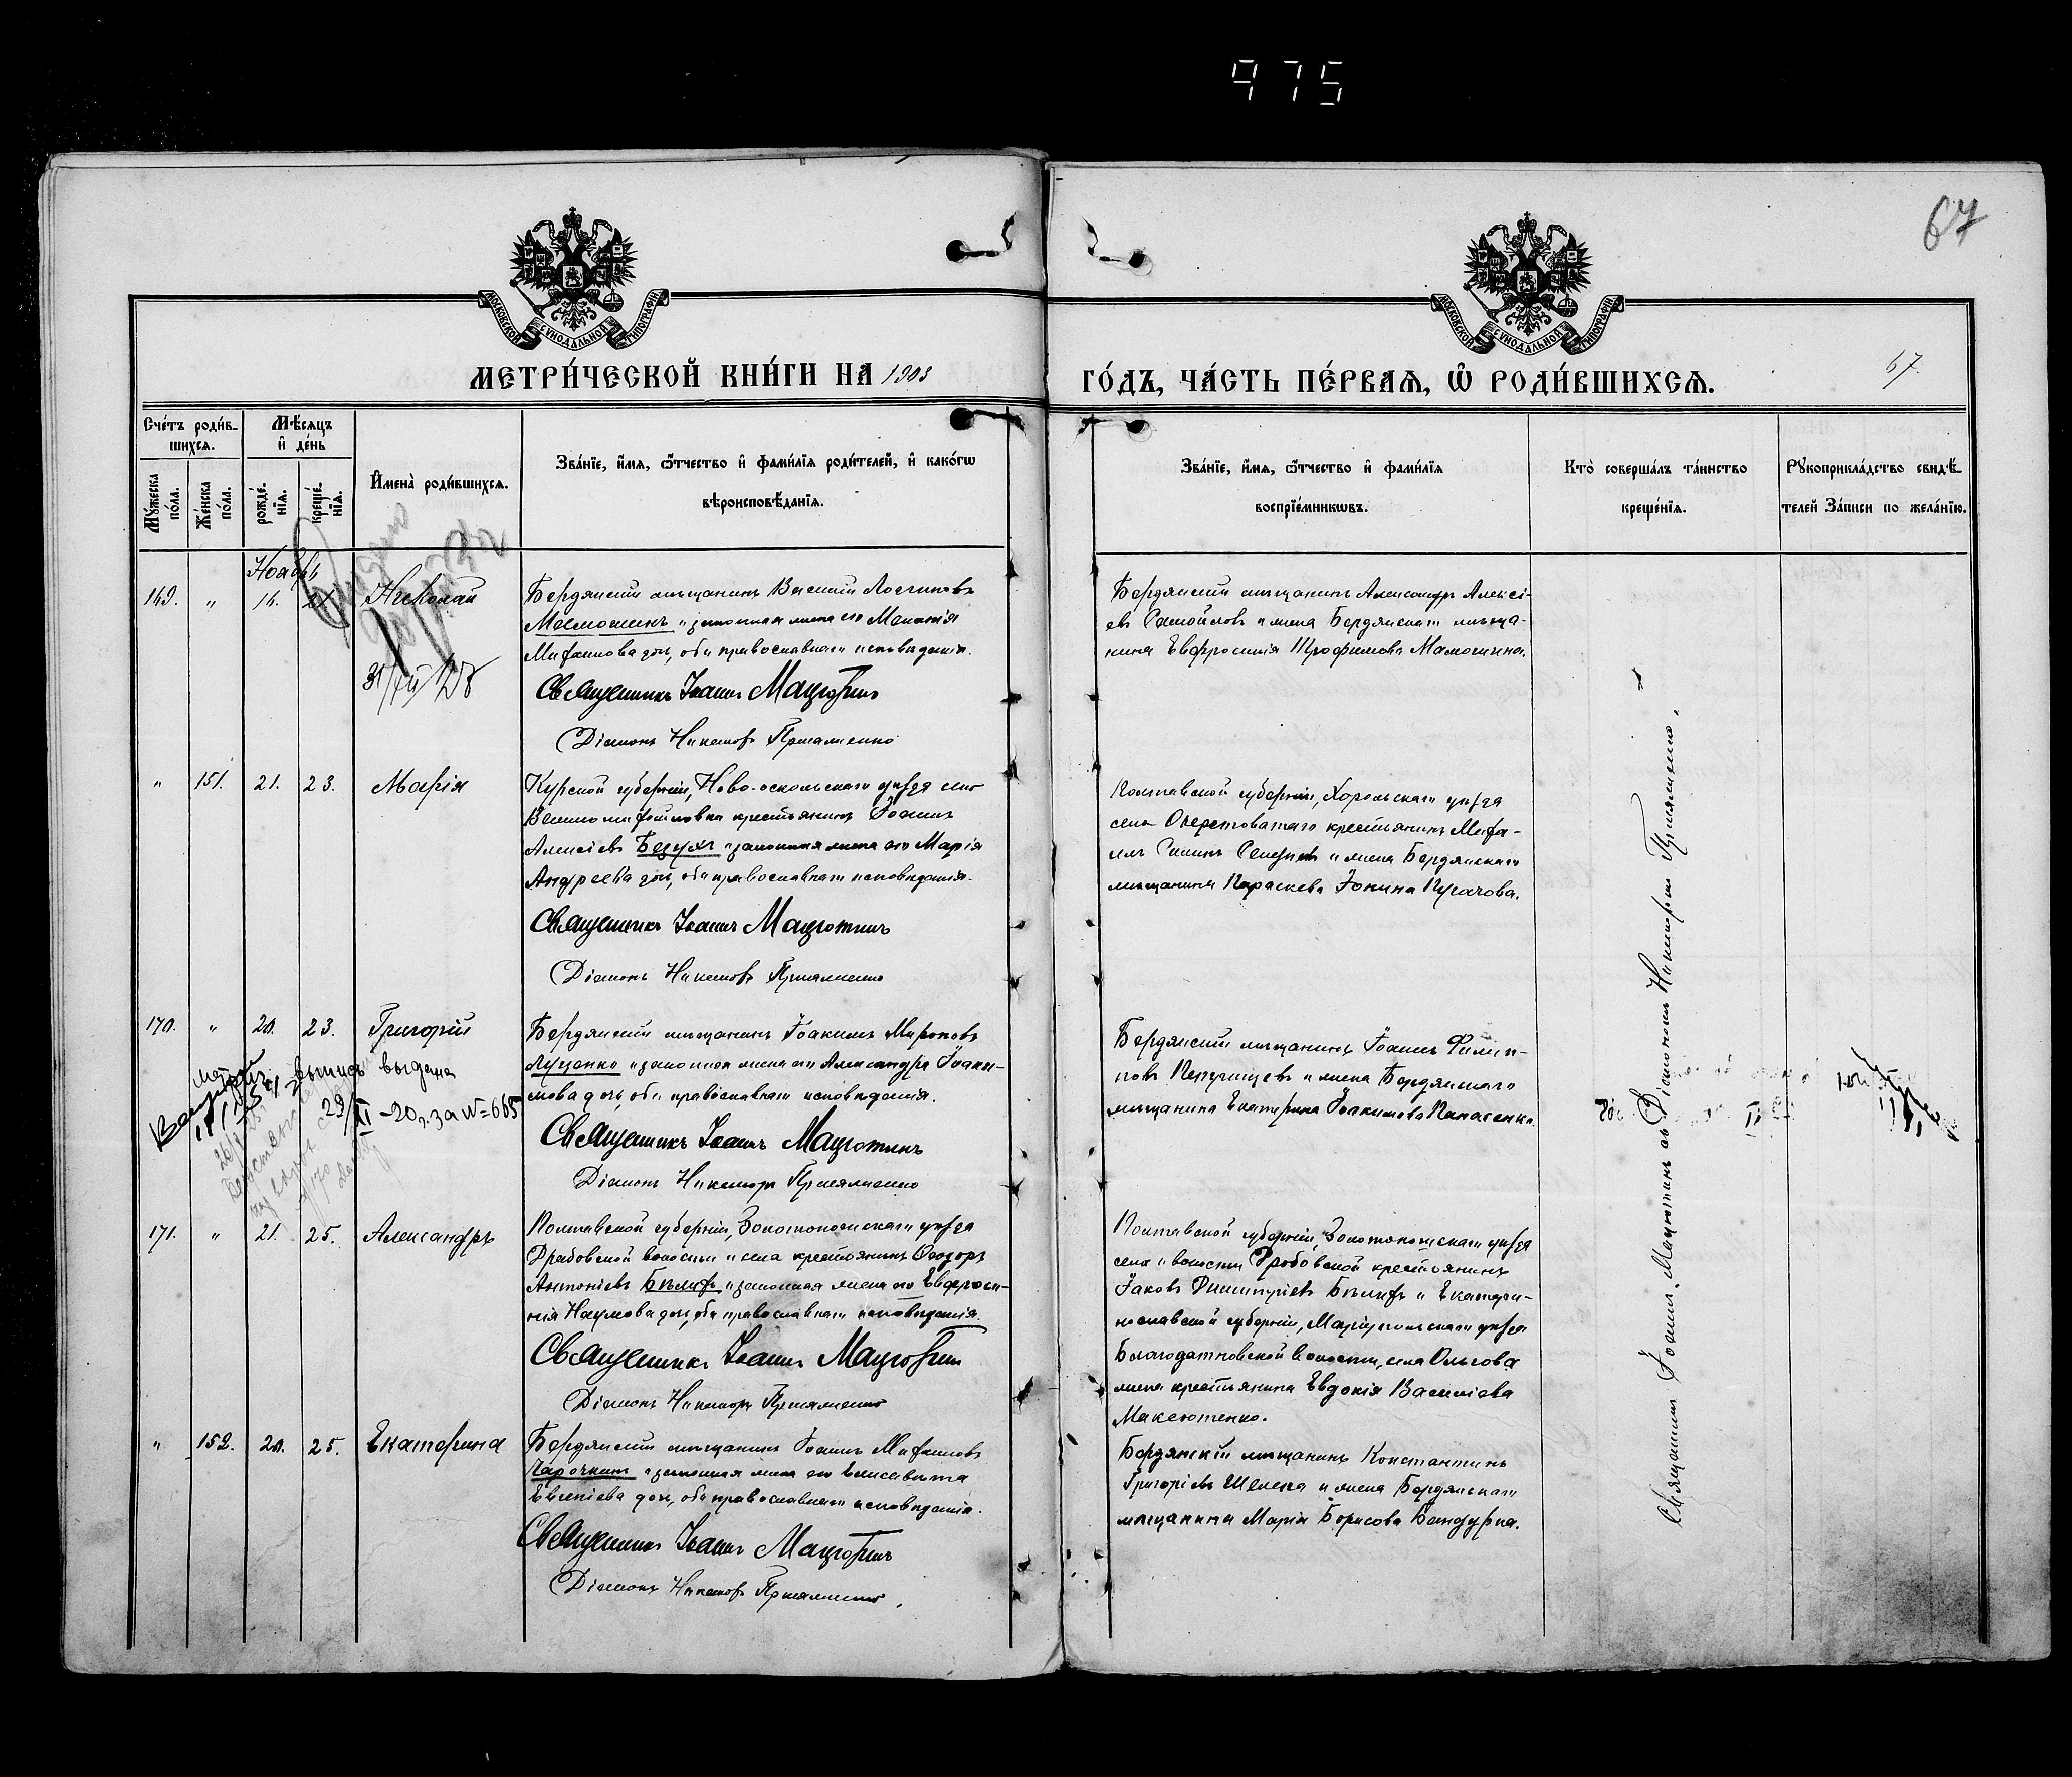 975
67
МОСКОВСКОЙ СУНОДАЛЬНОЙ ТИПОГРАФІИ
МОСКОВСКОЙ СУНОДАЛЬНОЙ ТИПОГРАФІИ
МЕТРИ́ЧЕСКОЙ КНИ́ГИ НА 1903
ГО́ДЪ, ЧА́СТЬ ПЕ́РВАѦ, Ѡ҆ РОДИ́ВШИХСѦ.
67.
Сче́тъ роди́в-
шихсѧ.
Мѣ́сѧцъ
и҆ де́нь
Мꙋ́жеска по́ла.
Же́нска по́ла.
рожде́нїѧ.
креще́нїѧ.
И҆мена̀ роди́вшихсѧ.
Зва́нїе, и҆́мѧ, ѻ҆́тчество и҆ фами́лїѧ роди́телей, и҆ како́гѡ
вѣроисповѣ́данїѧ.
Зва́нїе, и҆́мѧ, ѻ҆́тчество и҆ фами́лїѧ
воспрїе́мникѡвъ.
Кто̀ соверша́лъ та́инство
креще́нїѧ.
Рꙋкоприкла́дство свидѣ́-
телей за́писи по жела́нїю.
Ноябрь
169. " 16. 21. Николай
Бердянскій мѣщанинъ Василій Логиновъ
Мамошинъ и законная жена его Меланія
Михаилова дочь, оба православнаго исповѣданія.
Священникъ Іоаннъ Мацготинъ
Діаконъ Никаноръ Прияменко
Бердянскій мѣщанинъ Александръ Алексі-
евъ Самойловъ и жена Бердянскаго мѣща-
нина Евфросинія Трофимова Мамошина.
" 151. 21. 23. Марія
Курской губерніи, Ново-оскольскаго уѣзда село
Великомихайловка крестьянинъ Іоаннъ
Алексіевъ Безухъ и законная жена его Марія
Андреева дочь, оба православнаго исповѣданія.
Священникъ Іоаннъ Мацготинъ
Діаконъ Никаноръ Прияменко
Полтавской губерніи, Хорольскаго уѣзда
села крестьянинъ Миха-
илъ и жена Бердянскаго
мѣщанина Параскева Іонина Пугачова.
170. " 20. 23. Григорій
Бердянскій мѣщанинъ Іоакимъ Мироновъ
Луценко и законная жена его Александра Іоаки-
мова дочь, оба православнаго исповѣданія.
Священникъ Іоаннъ Мацготинъ
Діаконъ Никаноръ Прияменко
выпись выдана
29/XI -20 г. за №=665
Бердянскій мѣщанинъ Іоаннъ Филип-
повъ и жена Бердянскаго
мѣщанина Екатерина Іоакимова Панасенко.
171. " 21. 25. Александръ
Полтавской губерніи, Золотоношскаго уѣзда
Драбовской волости и села крестьянинъ Ѳеодоръ
Антоніевъ Бѣликъ и законная жена его Евфроси-
нія Наумова дочь, оба православнаго исповѣданія.
Священникъ Іоаннъ Мацготинъ
Діаконъ Никаноръ Прияменко
Полтавской губерніи, Золотоношскаго уѣзда
села и волости Драбовской крестьянинъ
Іаковъ Димитріевъ Бѣликъ и Екатери-
нославской губерніи, Маріупольскаго уѣзда
Благодатновской волости, села Ольгова
жена крестьянина Евдокія Василіева
Максютенко.
" 152. 20. 25. Екатерина
Бердянскій мѣщанинъ Іоаннъ Михаиловъ
Парочкинъ и законная жена его Елисавета
Евгеніева дочь, оба православнаго исповѣданія.
Священникъ Іоаннъ Мацготинъ
Діаконъ Никаноръ Прияменко
Бердянскій мѣщанинъ Константинъ
Григоріевъ Шелеха и жена Бердянскаго
мѣщанина Марія Борисова Бандурка.
Священникъ Іоаннъ Мацготинъ съ Діакономъ Никаноромъ Прияменко.